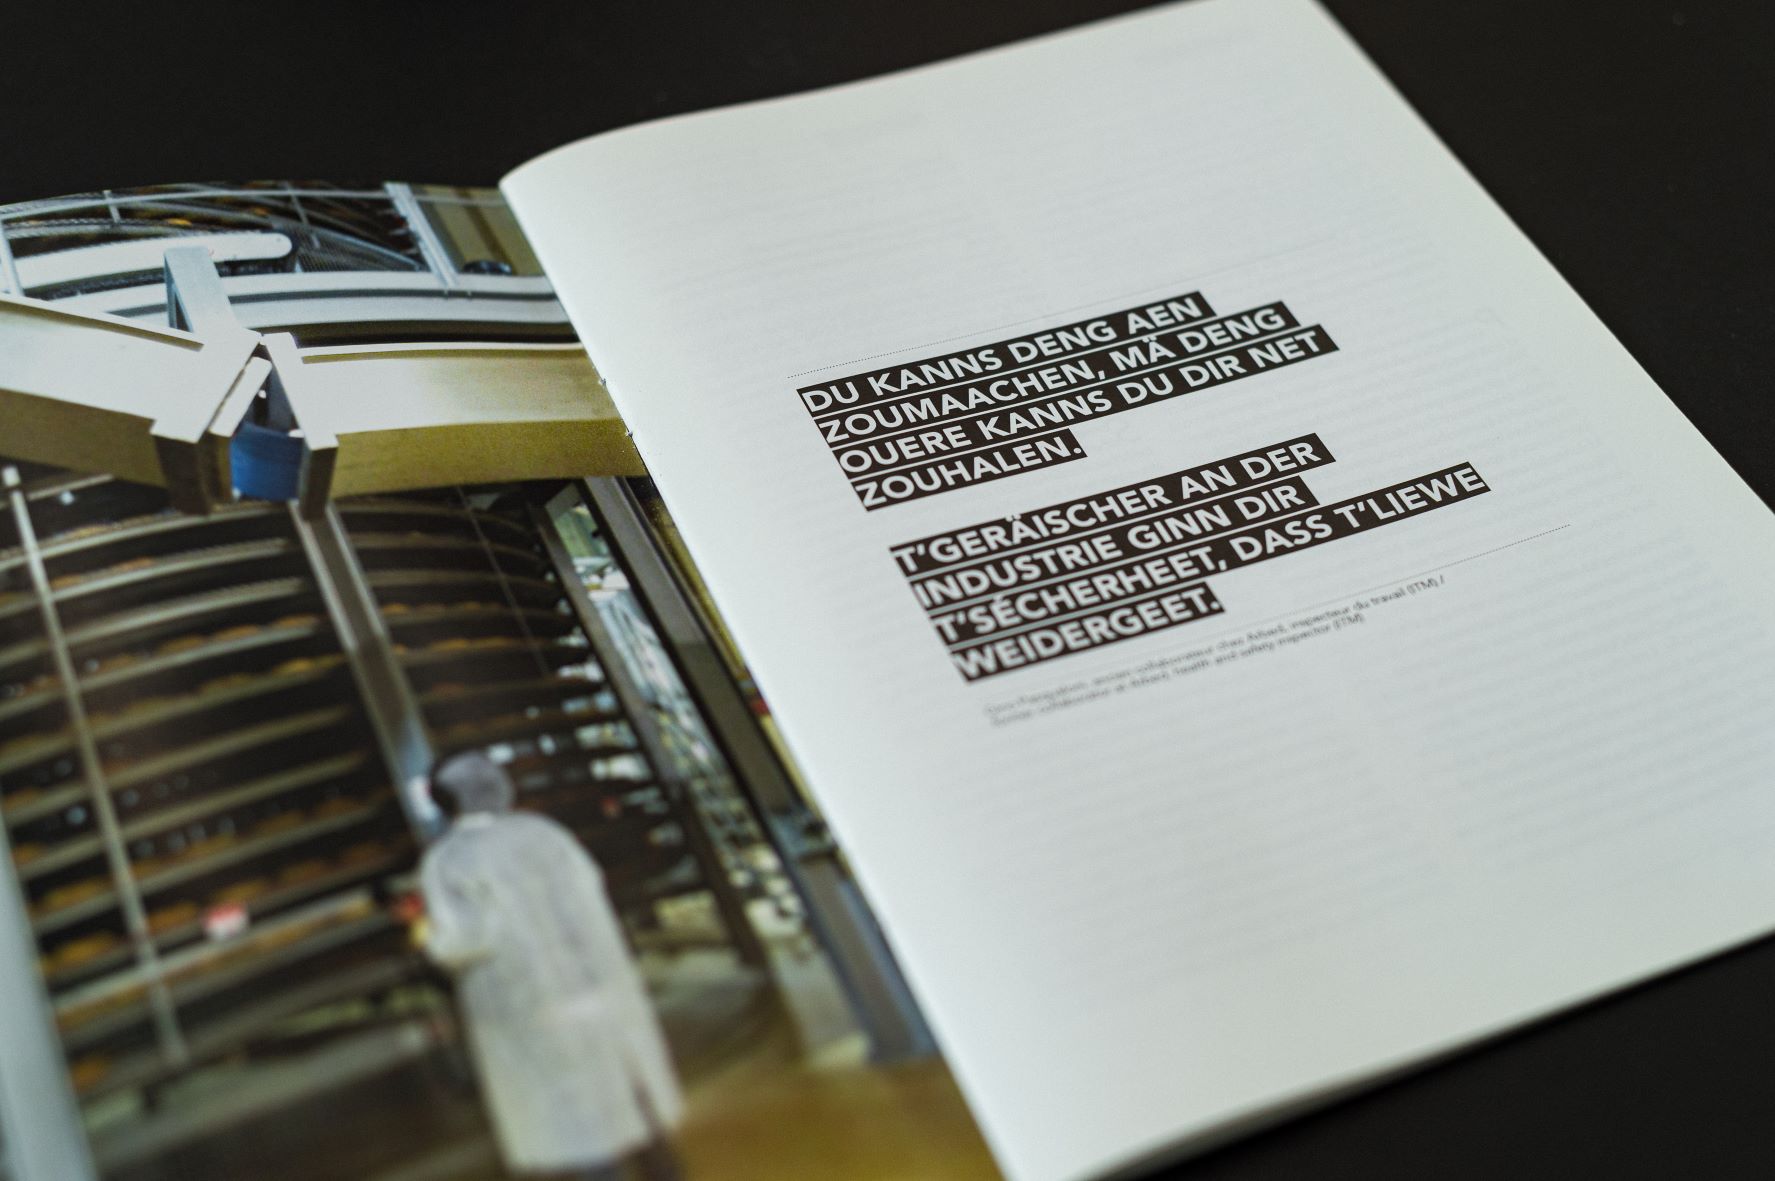 DU KANNS DENG AEN
ZOUMAACHEN, MÄ DENG
OUERE KANNS DU DIR NET
ZOUHALEN.
T'GERÄISCHER AN DER
INDUSTRIE GINN DIR
T'SÉCHERHEET, DASS T'LIEWE
WEIDERGEET.
ancien collaborateur chez Arbed, inspecteur du travail (ITM) /
former collaborator at Arbed, health and safety inspector (ITM)